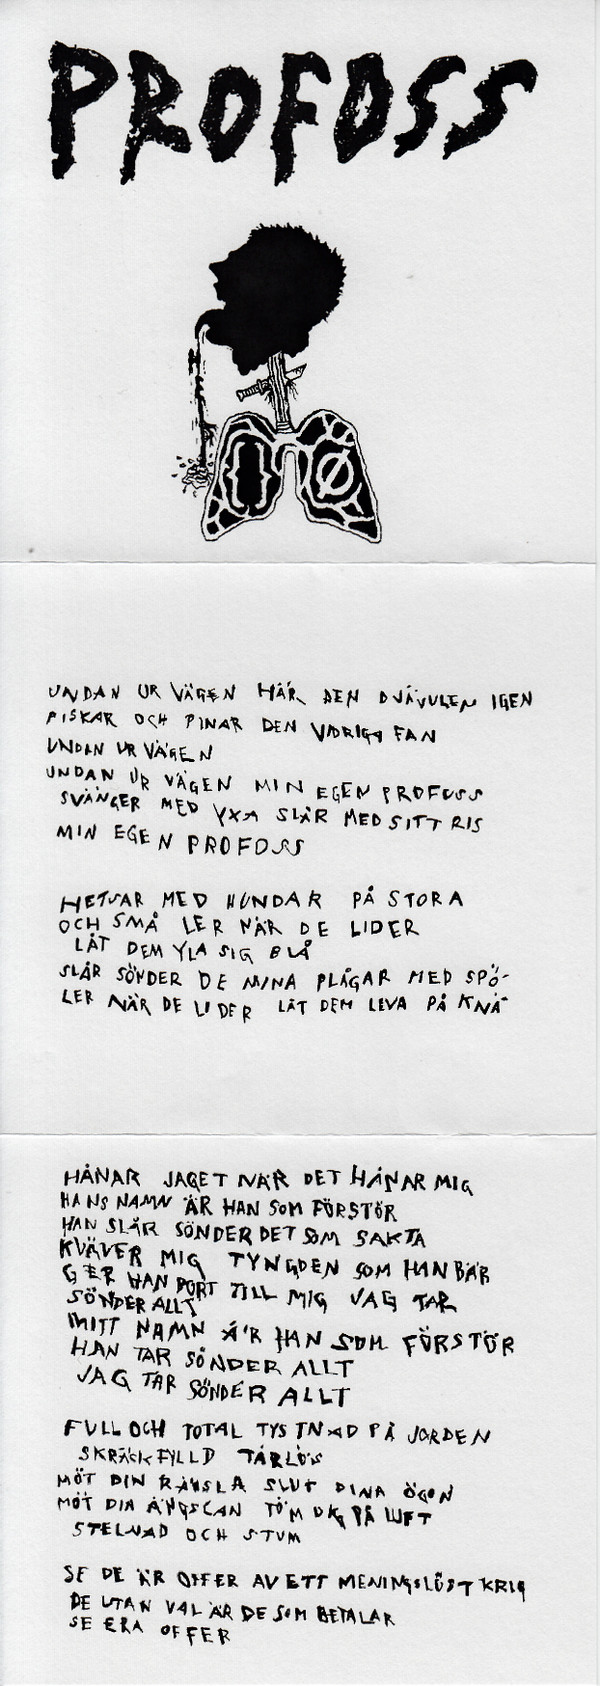 PROFOSS
{} Ø
UNDAN UR VÄGEN HÄR DEN DJÄVULEN IGEN
PISKAR OCH PINAR DEN VIDRIGA FAN
UNDAN UR VÄGEN
UNDAN UR VÄGEN MIN EGEN PROFOSS
SVÄNGER MED YXA SLÅR MED SITT RIS
MIN EGEN PROFOSS
HETSAR MED HUNDAR PÅ STORA
OCH SMÅ LER NÄR DE LIDER
LÅT DEM YLA SIG BLÅ
SLÅR SÖNDER DE MINA PLÅGAR MED SPÖ
LER NÄR DE LIDER LÅT DEM LEVA PÅ KNÄ
HÅNAR JAGET NÄR DET HÅNAR MIG
HANS NAMN ÄR HAN SOM FÖRSTÖR
HAN SLÅR SÖNDER DET SOM SAKTA
KVÄVER MIG TYNGDEN SOM HAN BÄR
GER HAN BORT TILL MIG JAG TAR
SÖNDER ALLT
MITT NAMN ÄR HAN SOM FÖRSTÖR
HAN TAR SÖNDER ALLT
JAG TAR SÖNDER ALLT
FULL OCH TOTAL TYSTNAD PÅ JORDEN
SKRÄCKFYLLD TÅRLÖS
MÖT DIN RÄDSLA SLUT DINA ÖGON
MÖT DIN ÄNGSLAN TÖM DIG PÅ LUFT
STELNAD OCH STUM
SE DE ÄR OFFER AV ETT MENINGSLÖST KRIG
DE UTAN VAL ÄR DE SOM BETALAR
SE ERA OFFER